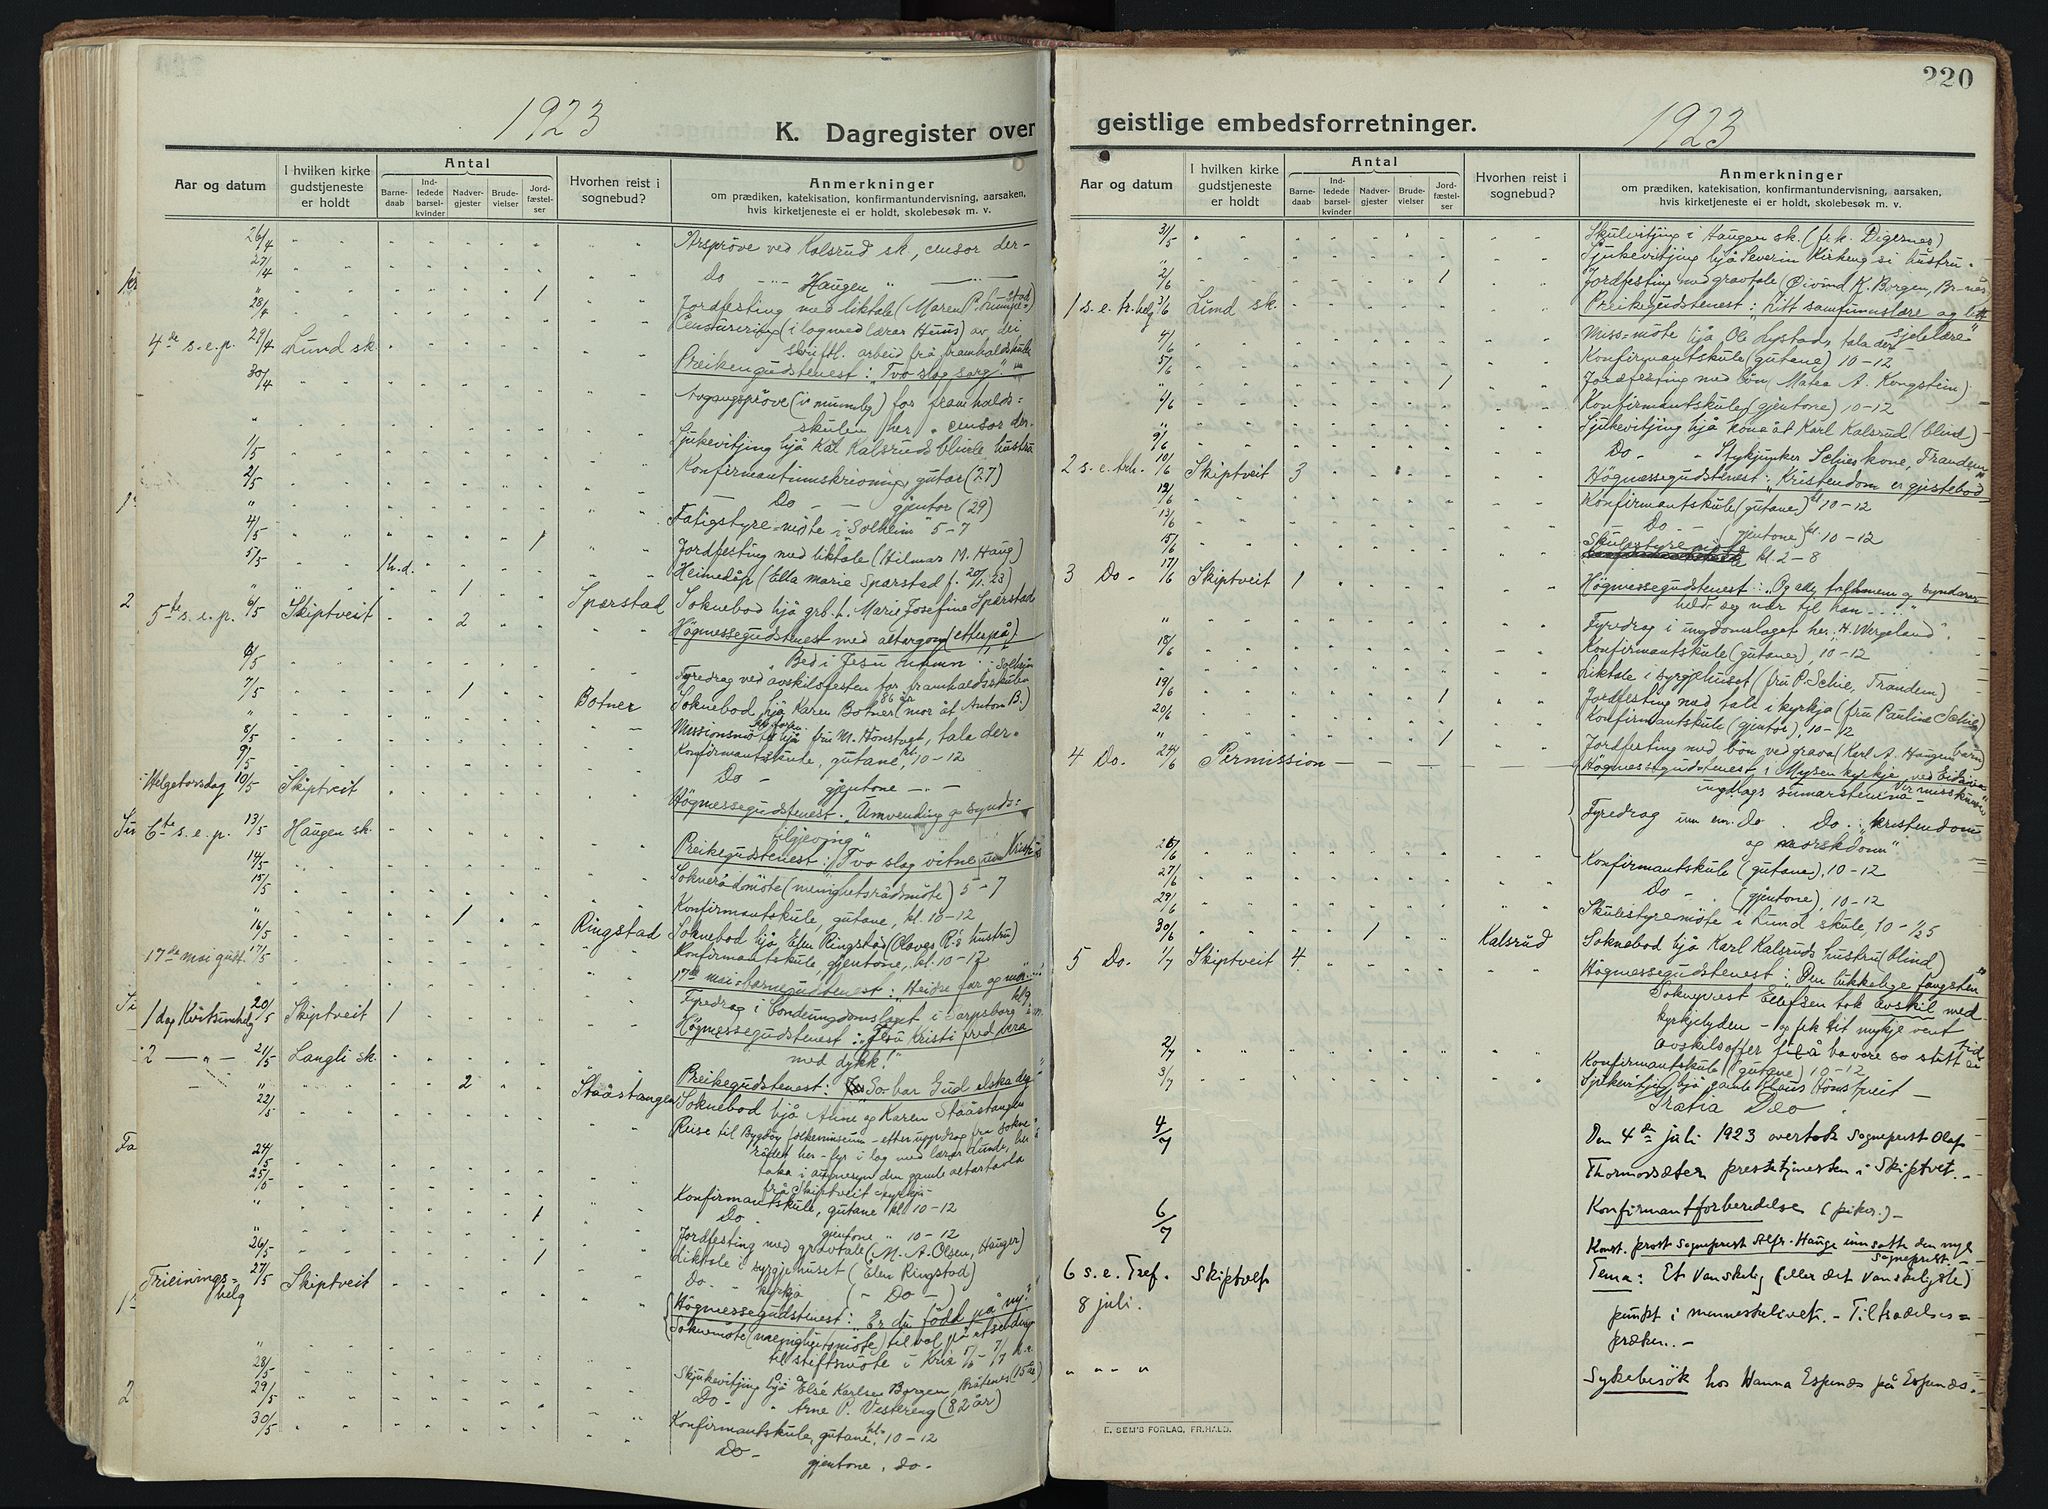 1923
K. Dagregister over
Aar og datum
I hvilken kirke gudstjeneste er holdt
Antal
Barnedaab
Indledede barselkvinder
Nadvergjester
Brudevielser
Jordfæstelser
Hvorhen reist i sognebud?
Anmerkninger
om prædiken, katekisation, konfirmantundervisning, aarsaken,
hvis kirketjeneste ei er holdt, skolebesøk m. v.
26/4 Årsprøve ved Kalsrud sk, censor der-
27/4 Do - " - Haugen "
" 1 Jordfesting med liktale (Maren P.
28/4 Censurering (i lag med lærar Huus) av dei
skriftl. arbeid frå framhaldsskule
4de s. e. p. 29/4 Lund sk. Preikegudstenest: "Tvo slag sorg."
30/4 (i munnleg) for framhalds=
skulen her, censor der-
" Sjukevitjing hjå Kal Kalsruds hustru
1/5 gutar (27)
2/5 Do - - gjentor (29)
" Fatigstyre-møte i "Solheim" 5-7
4/5 1 Jordfesting med liktale (Hilmar M. Haug)
5/5 1 h.d. Heimedåp (Ella Marie Sparstad f. 20/1 23)
" 1 Sparstad Soknebod hjå grb. f. Marie Josefine Sparstad
5te s. e. p. 6/5 Skiptveit 2 Högmessegudstenest med altergong (etterpå)
"Bed i Jesu namn
6/5 Fyredrag ved avskilsfesten for framhaldsskulen
7/5 1 Botner Soknebod hjå Karen Botner 86 år (mor åt Anton B.)
" hjå fru M. Honstvet, tala der.
8/5 Konfirmantskule, gutane, kl. 10-12
9/5 Do - gjentone - " -
Helgetorsdag 10/5 Skiptveit Högmessegudstenest. "Umvending og synds=
tilgjevnig"
6te s. e. p. 13/5 Haugen sk. Preikegudstenest: "Tvo slag vitne um
14/5 Soknerådmöte (menighetsrådsmöte) 5-7
15/5 Konfirmantskule, gutane, kl. 10-12
" 1 Ringstad Soknebod hjå Elen Ringstad (Olaves R's hustru)
16/5 Konfirmantskule gjentone, kl. 10-12
17de mai gudt. 17/5 17de mai=barnegudstenest: "Heidre far og mor..."
" Fyredrag i Bondeungdomslaget i Sarpsborg
1 dag Kvitsunhelg 20/5 Skiptveit 1 Högmessegudstenest: "Jesu Kristi fred vera
med dykk!"
2 - " - 21/5 Langli sk. Preikegudstenest: So har Gud elska dig
" 2 Stååstangen Soknebod hjå Anne og Karen Stååstangen
22/5 Reise til Bygdöy folkemuseum - etter uppdrag fra sokne=
rådet her - fyr i lag med lærar Lunde, he
taka i augnesyn den gamle altartavla
frå Skiptveit kyrkja -
24/5 Konfirmantskule, gutane kl. 10-12
25/5 Do - gjentone " 10-12
" 1 Jordfesting med gravtale (M. A. Olsen, Hauger)
26/5 Liktale i syrgjehuset (Elen Ringstad)
" 1 Do - kyrkja (- Do -)
Trieinings=helg 27/5 Skiptveit Högmessegudstenest: "Er du född på ny?
Soknemöte (menighetsmöte) til val på utsending
til stiftsmöte i Kria
" Sjukevitjing hjå Else Karlsen Borgen, (15 år)
28/5 Do - " Arne P. Vestereng (82 år)
29/5 Konfirmantskule, gutane, kl. 10-12
30/5 Do - gjentone, do -
220
geistlige embedsforretninger.
1923
Aar og datum
I hvilken kirke gudstjeneste er holdt
Antal
Barnedaab
Indledede barselkvinder
Nadvergjester
Brudevielser
Jordfæstelser
Hvorhen reist i sognebud?
Anmerkninger
om prædiken, katekisation, konfirmantundervisning, aarsaken,
hvis kirketjeneste ei er holdt, skolebesøk m. v.
31/5 Skulevitjing i Haugen sk. (frk. Digernes)
" Sjukevitjing hjå Severin Kirkeng si hustru.
2/6 1 Jordfesting med gravtale (Øivind K. Borgen, Br.nes)
1 s. e. tr.helg 3/6 Lund sk. Preikegudstenest: "Litt samfunnslære og litt
sjelelære"
4/6 Miss=möte hjå Ole Lystad, tala der
5/6 Konfirmantskule (gutane) 10-12
" 1 Jordfesting med bön (Matea A. Kongstein)
6/6 Konfirmantskule (gjentone) 10-12
" Sjukevitjing hjå kona åt Karl Kalsrud (blind)
9/6 Do - " Stykjunker Schies kone, Trandem
2 s. e. trh. 10/6 Skiptveit 3 Högmessegudstenest: "Kristendom er gjestebod"
12/6 Konfirmantskule (gutane) kl 10-12
13/6 Do - - gjentone) kl. 10-12
15/6 Skulestyremöte kl. 2-8
3 Do - 17/6 Skiptveit 1 Högmessegudstenest: "Og alle tollmenn og syndarar
heldt seg nær til han ...."
" Fyredrag i ungdomslaget her "H. Wergeland".
18/6 Konfirmantskule (gutane), 10-12
" Liktale i syrgjehuset (fru P. Schie, Trandem)
19/6 1 Jordfesting med tale i kyrkja (fru Pauline Schie)
20/6 Konfirmantskule (gjentor), 10-12
" 1 Jordfesting med bön ved grava (Karl A. Haugens barn)
4 Do. 24/6 Permission Högmessegudstenest i Mysen kyrkje ved
ungdlags sumarstemna
Fyredrag Do. Do. "kristendom
og norskdom"
26/6 Konfirmantskule (gutane), 10-12
27/6 Do - (gjentone), 10-12
29/6 Skulestyremöte i Lund skule, 10-
30/6 1 Kalsrud Soknebod hjå Karl Kalsruds hustru (blind)
5 Do. 1/7 Skiptveit 4 Högmessegudstenest: "Den lukkelige fangsten"
Sokneprest Ellefsen tok avskil med
kyrkjelyden - og fekk eit mykje vent
avskilsoffer
2/7 Konfirmantskule (gutane) 10-12
3/7 Sjukevitjing hjå gamle Klaus Hönstveit -
Gratia Deo.
4/7 Den 4de juli 1923 overtok Sogneprest Olaf
Thormodsæter prestetjenesten i Skiptvet. -
Konfirmantforberedelse (piker.) -
6/7 Konst. prost Sogneprest Alfr. Hauge innsatte den nye
Sogneprest. -
6 s. e. Tref. 8 juli. Skiptvet Tema: Et Vanskelig (eller det Vanskeligste)
punkt i menneskelivet. - Tiltrædelses=
præken. -
" " " " Sykebesök hos Hanna Espenes på Espenes.
E. SEM'S FORLAG, FR.HALD.